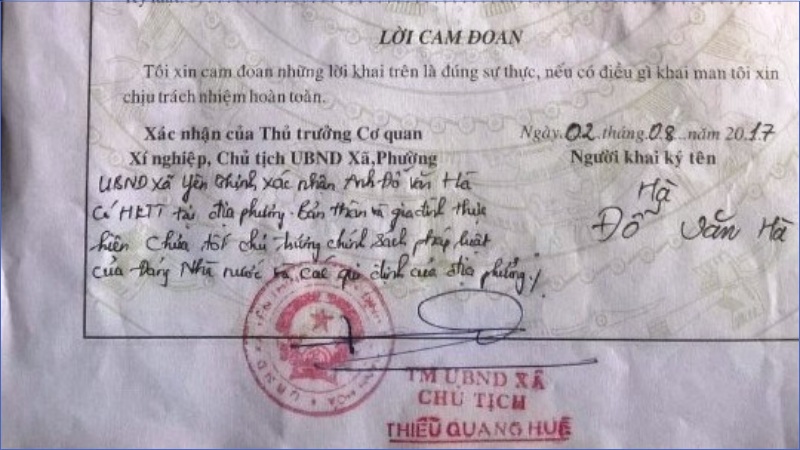 LỜI CAM ĐOAN
Tôi xin cam đoan những lời khai trên là đúng sự thực, nếu có điều gì khai man tôi xin
chịu trách nhiệm hoàn toàn.
Xác nhận của Thủ trưởng Cơ quan
Xí nghiệp, Chủ tịch UBND Xã,Phường
Ngày 02 tháng 08 năm 2017
Người khai ký tên
UBND xã Yên Thịnh xác nhân Anh Đỗ Văn Hà
Có HKTT tại địa phương. Bản thân và gia đình thực
hiện Chưa tốt chủ trương chính sách pháp luật
của Đảng Nhà nước và các qui định của địa phương./
Hà
Đỗ Văn Hà
TM UBND XÃ
CHỦ TỊCH
THIỀU QUANG HUẾ